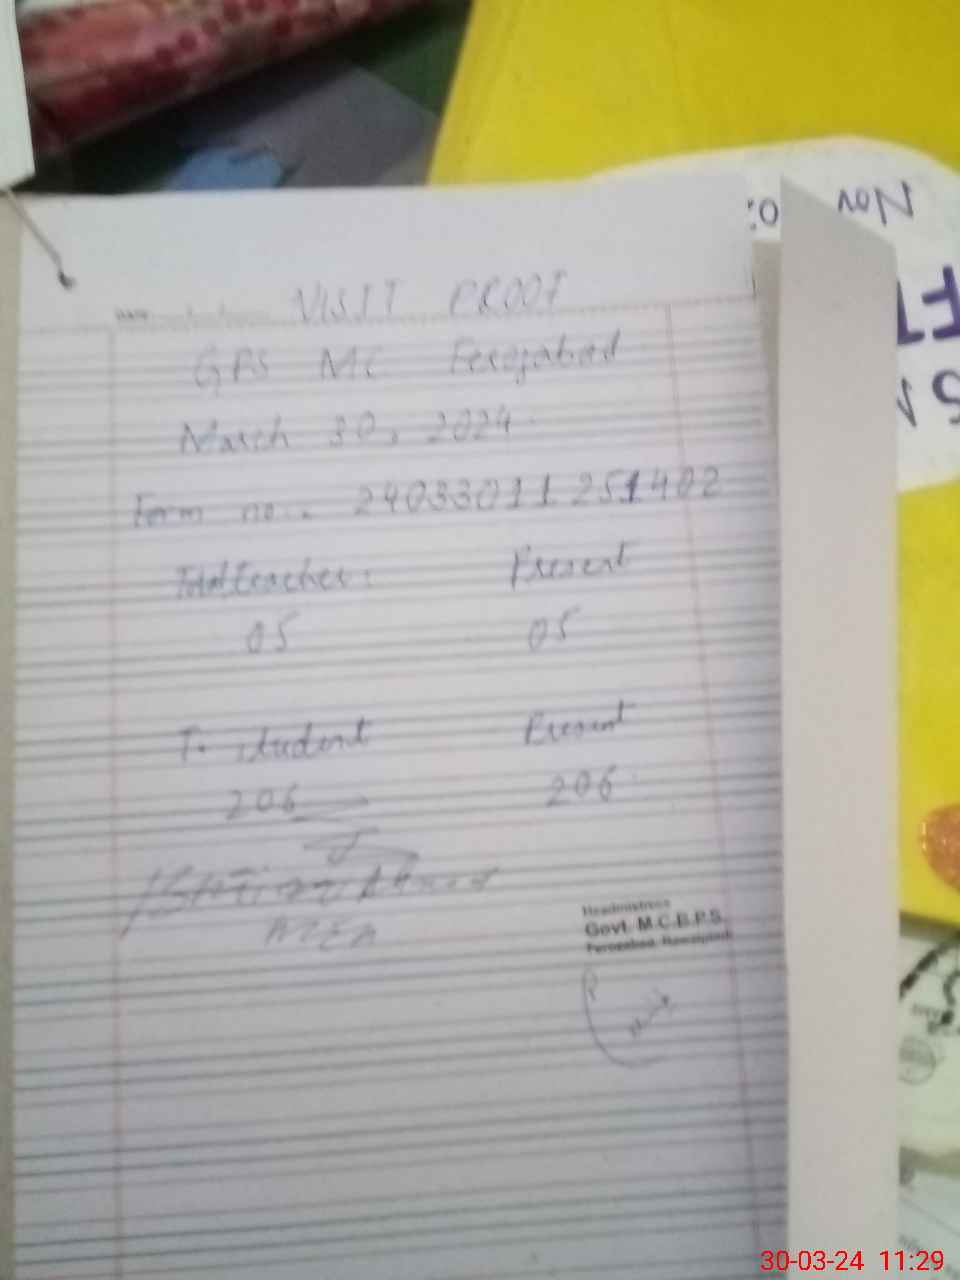 VISIT PROOF
GPS MC Ferozabad
March 30, 2024
Form no:. 24033011251402
Total teacher: Present
05 05
T. student Present
206 206
Ahmed
AEO
Headmistress
Govt. M.C.B.P.S.
Ferozabad, Rawalpindi
Nov
30-03-24 11:29